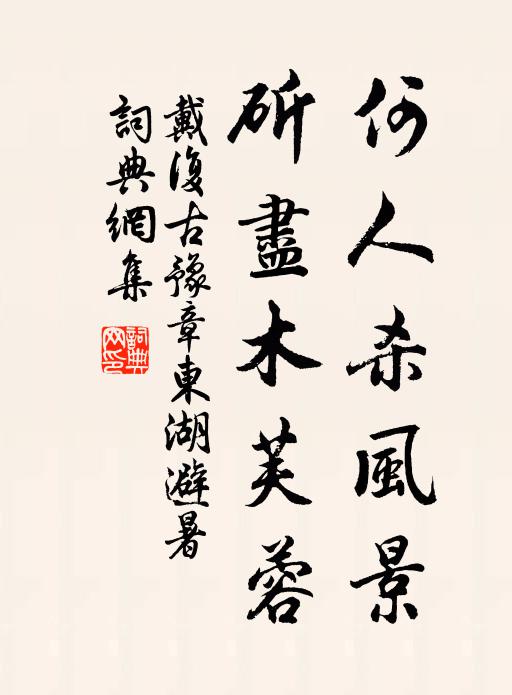 何人杀風景
斫盡木芙蓉
戴復古豫章東湖避暑
詞典網集
詞典网印